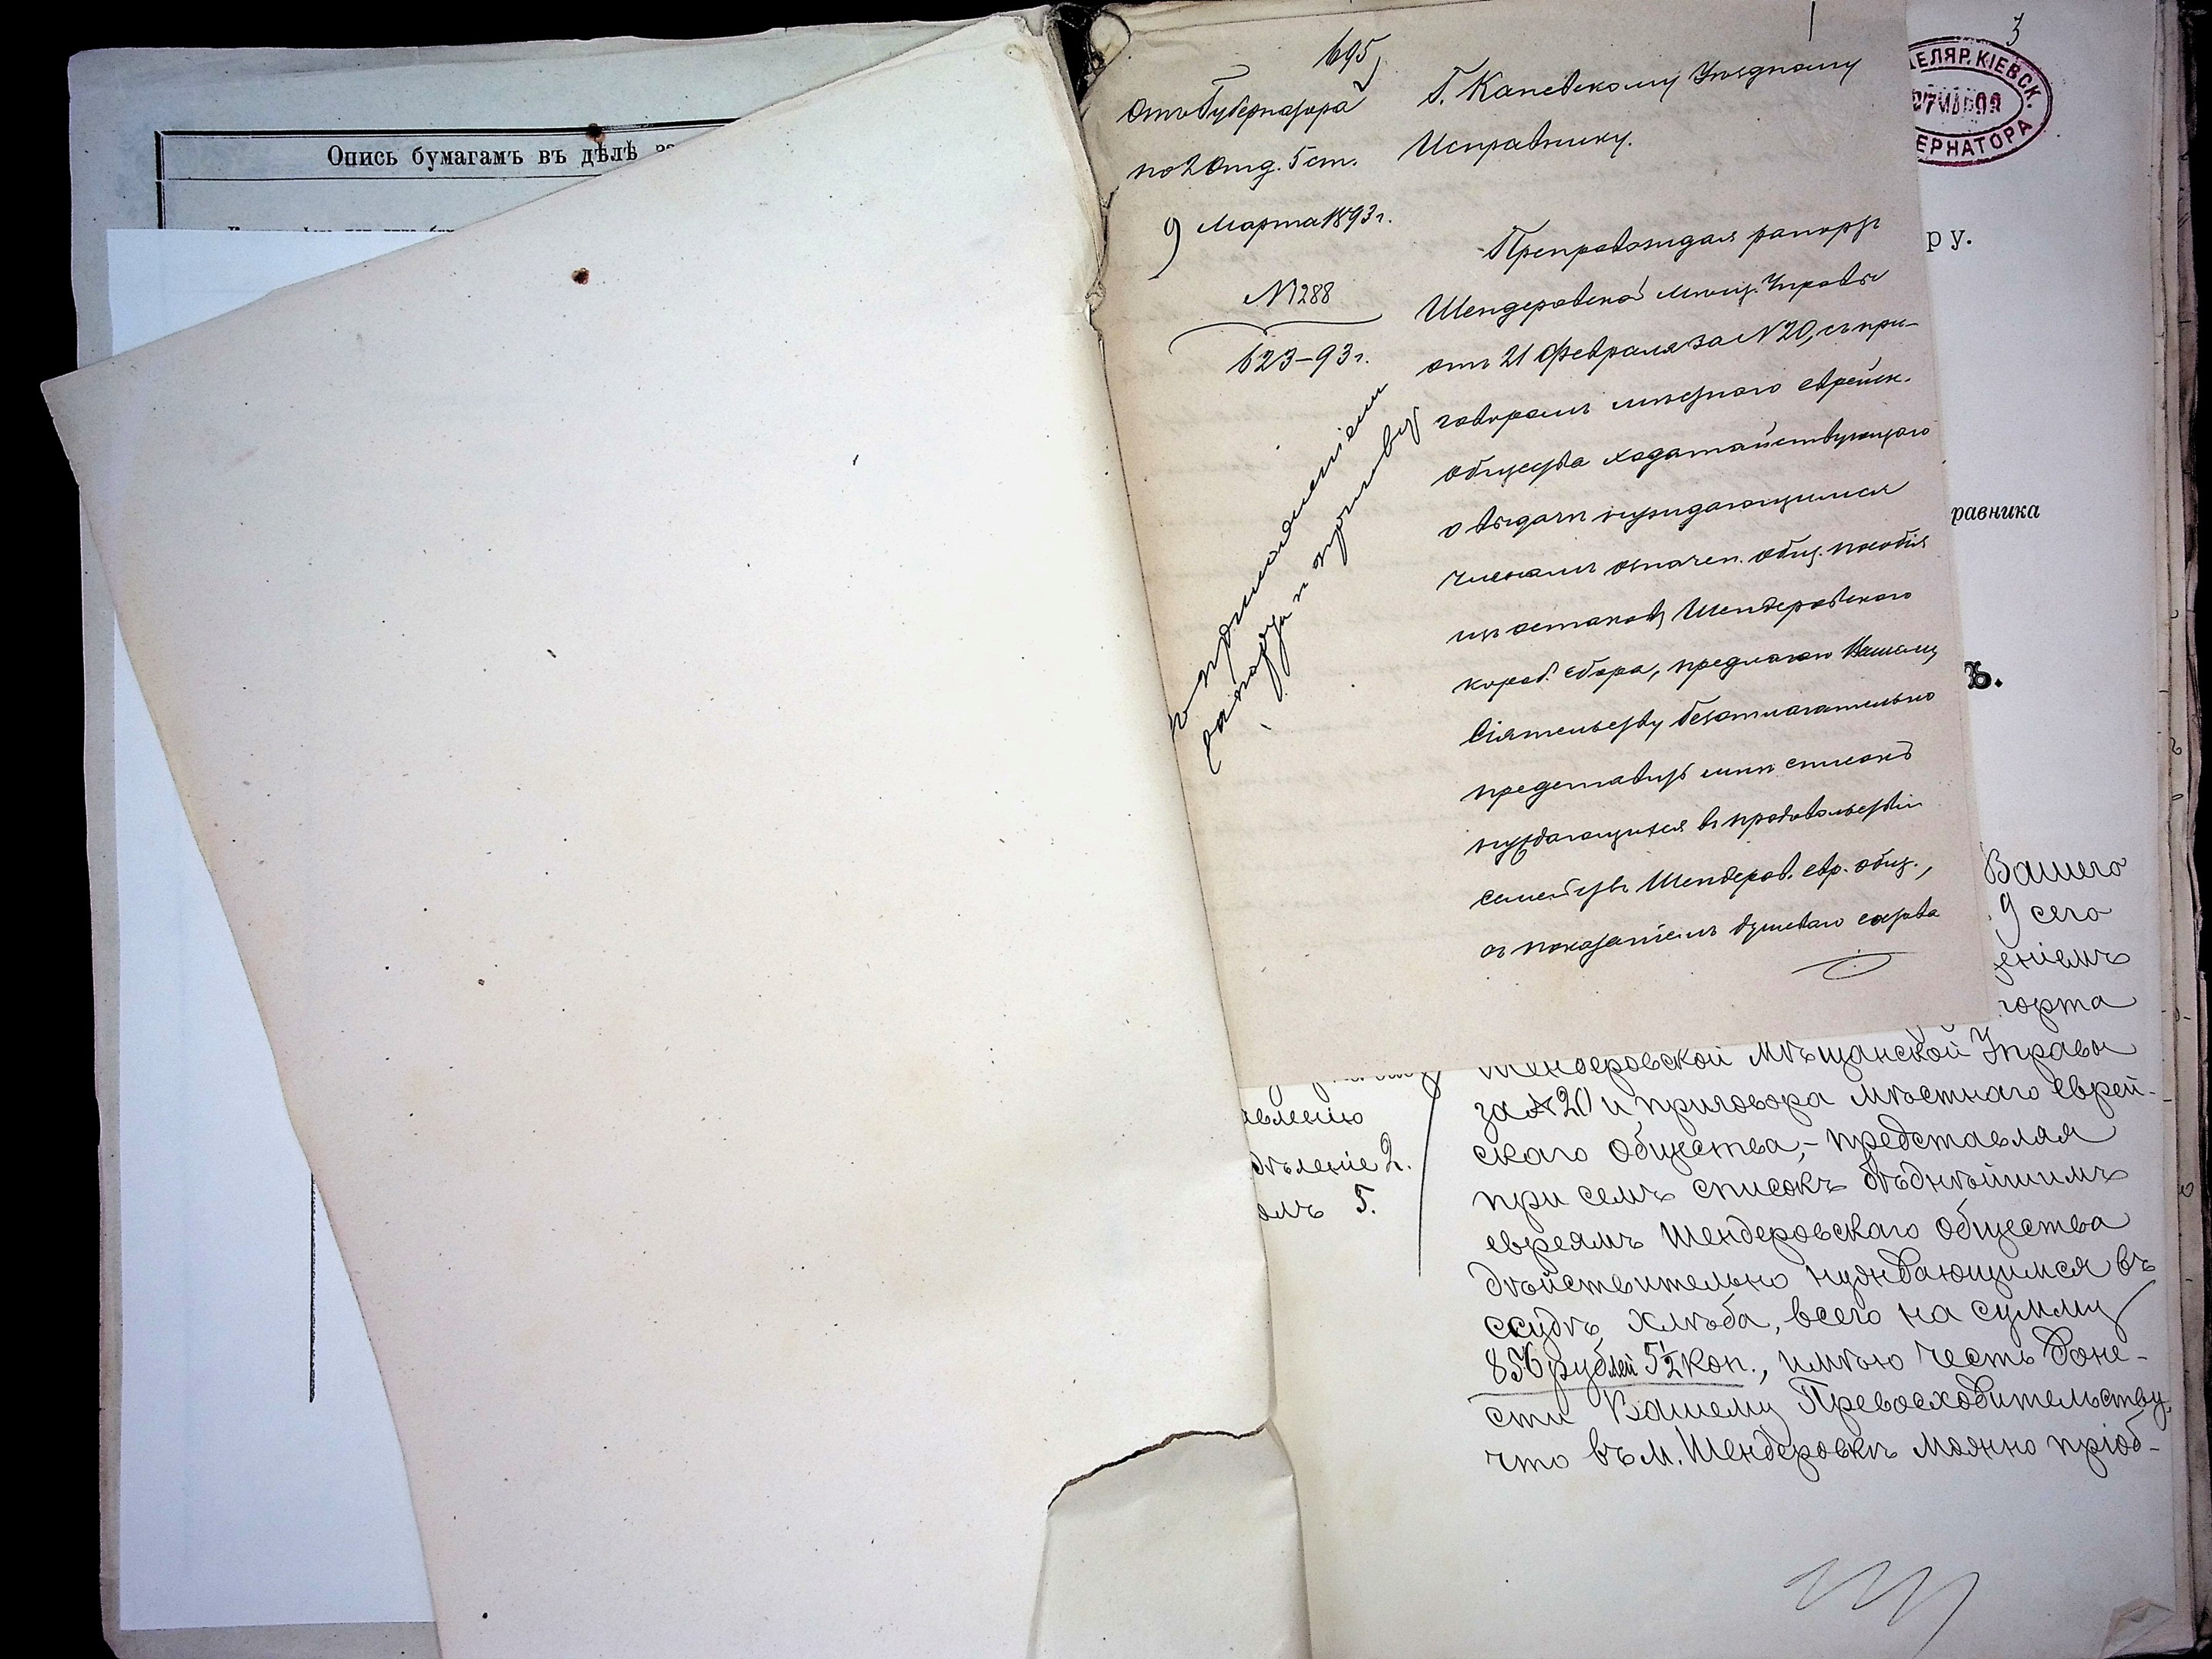 Опись бумагамъ въ дѣлѣ
695
отъ Губернатора
по 2 Отд. 5 ст.
9 Марта 1893 г.
№ 1288
623-93 г.
съ приложеніемъ
рапорта и приговора
1
Г. Каневскому Уѣздному
Исправнику.
Препровождая рапортъ
Шендеровской мѣщ. Управы
отъ 21 Февраля за № 20, съ при-
говоромъ мѣстнаго еврейск.
общества ходатайствующаго
о выдачѣ нуждающимся
членамъ означен. общ. пособія
изъ остатковъ Шендеровскаго
короб. сбора, предлагаю Вашему
Сіятельству безотлагательно
представить мнѣ списокъ
нуждающихся въ продовольствіи
семействъ Шендеров. евр. общ.,
съ показаніемъ душеваго состава
3
ЕЛЯР. КІЕВСК.
ЕРНАТОРА
ру.
равника
ъ.
Вашего
9 сего
еніемъ
порта
Шендеровской Мѣщанской Управы
за № 20 и приговора мѣстнаго еврей-
скаго общества,- представляя
при семъ списокъ бѣднѣйшимъ
евреямъ Шендеровскаго общества
дѣйствительно нуждающимся въ
ссудѣ хлѣба, всего на сумму
856 рублей 5½ коп., имѣю честь доне-
сти Вашему Превосходительству,
что въ м. Шендеровкѣ можно пріоб-
авленію
дѣленіе 2.
омъ 5.